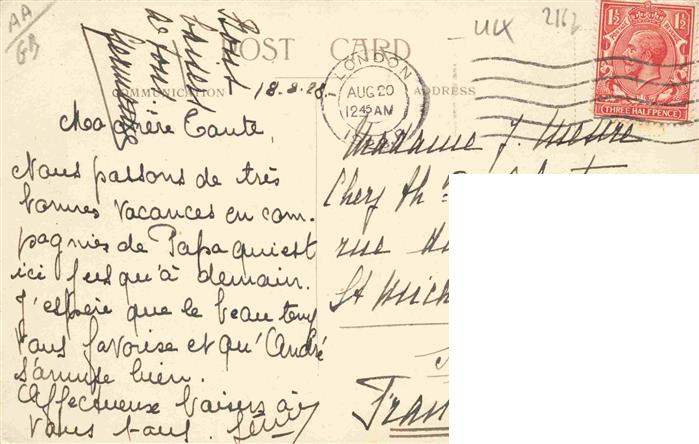 AA
GB
POST CARD
COMMUNICATION
ADDRESS
UX
2162
LONDON
AUG 20
12 45 AM
POSTAGE REVENUE
1½ 1½
THREE HALFPENCE
18.8.28.
Bons
baisers
de ton
Germaine
Ma chère Tante,
Nous passons de très
bonnes vacances en com-
pagnies de Papa qui est
ici jusqu'à demain.
J'espère que le beau temps
vous favorise et qu'André
s'amuse bien.
Affectueux baisers à
vous tous.
Madame J.
Chez
rue
St Mich
Fran